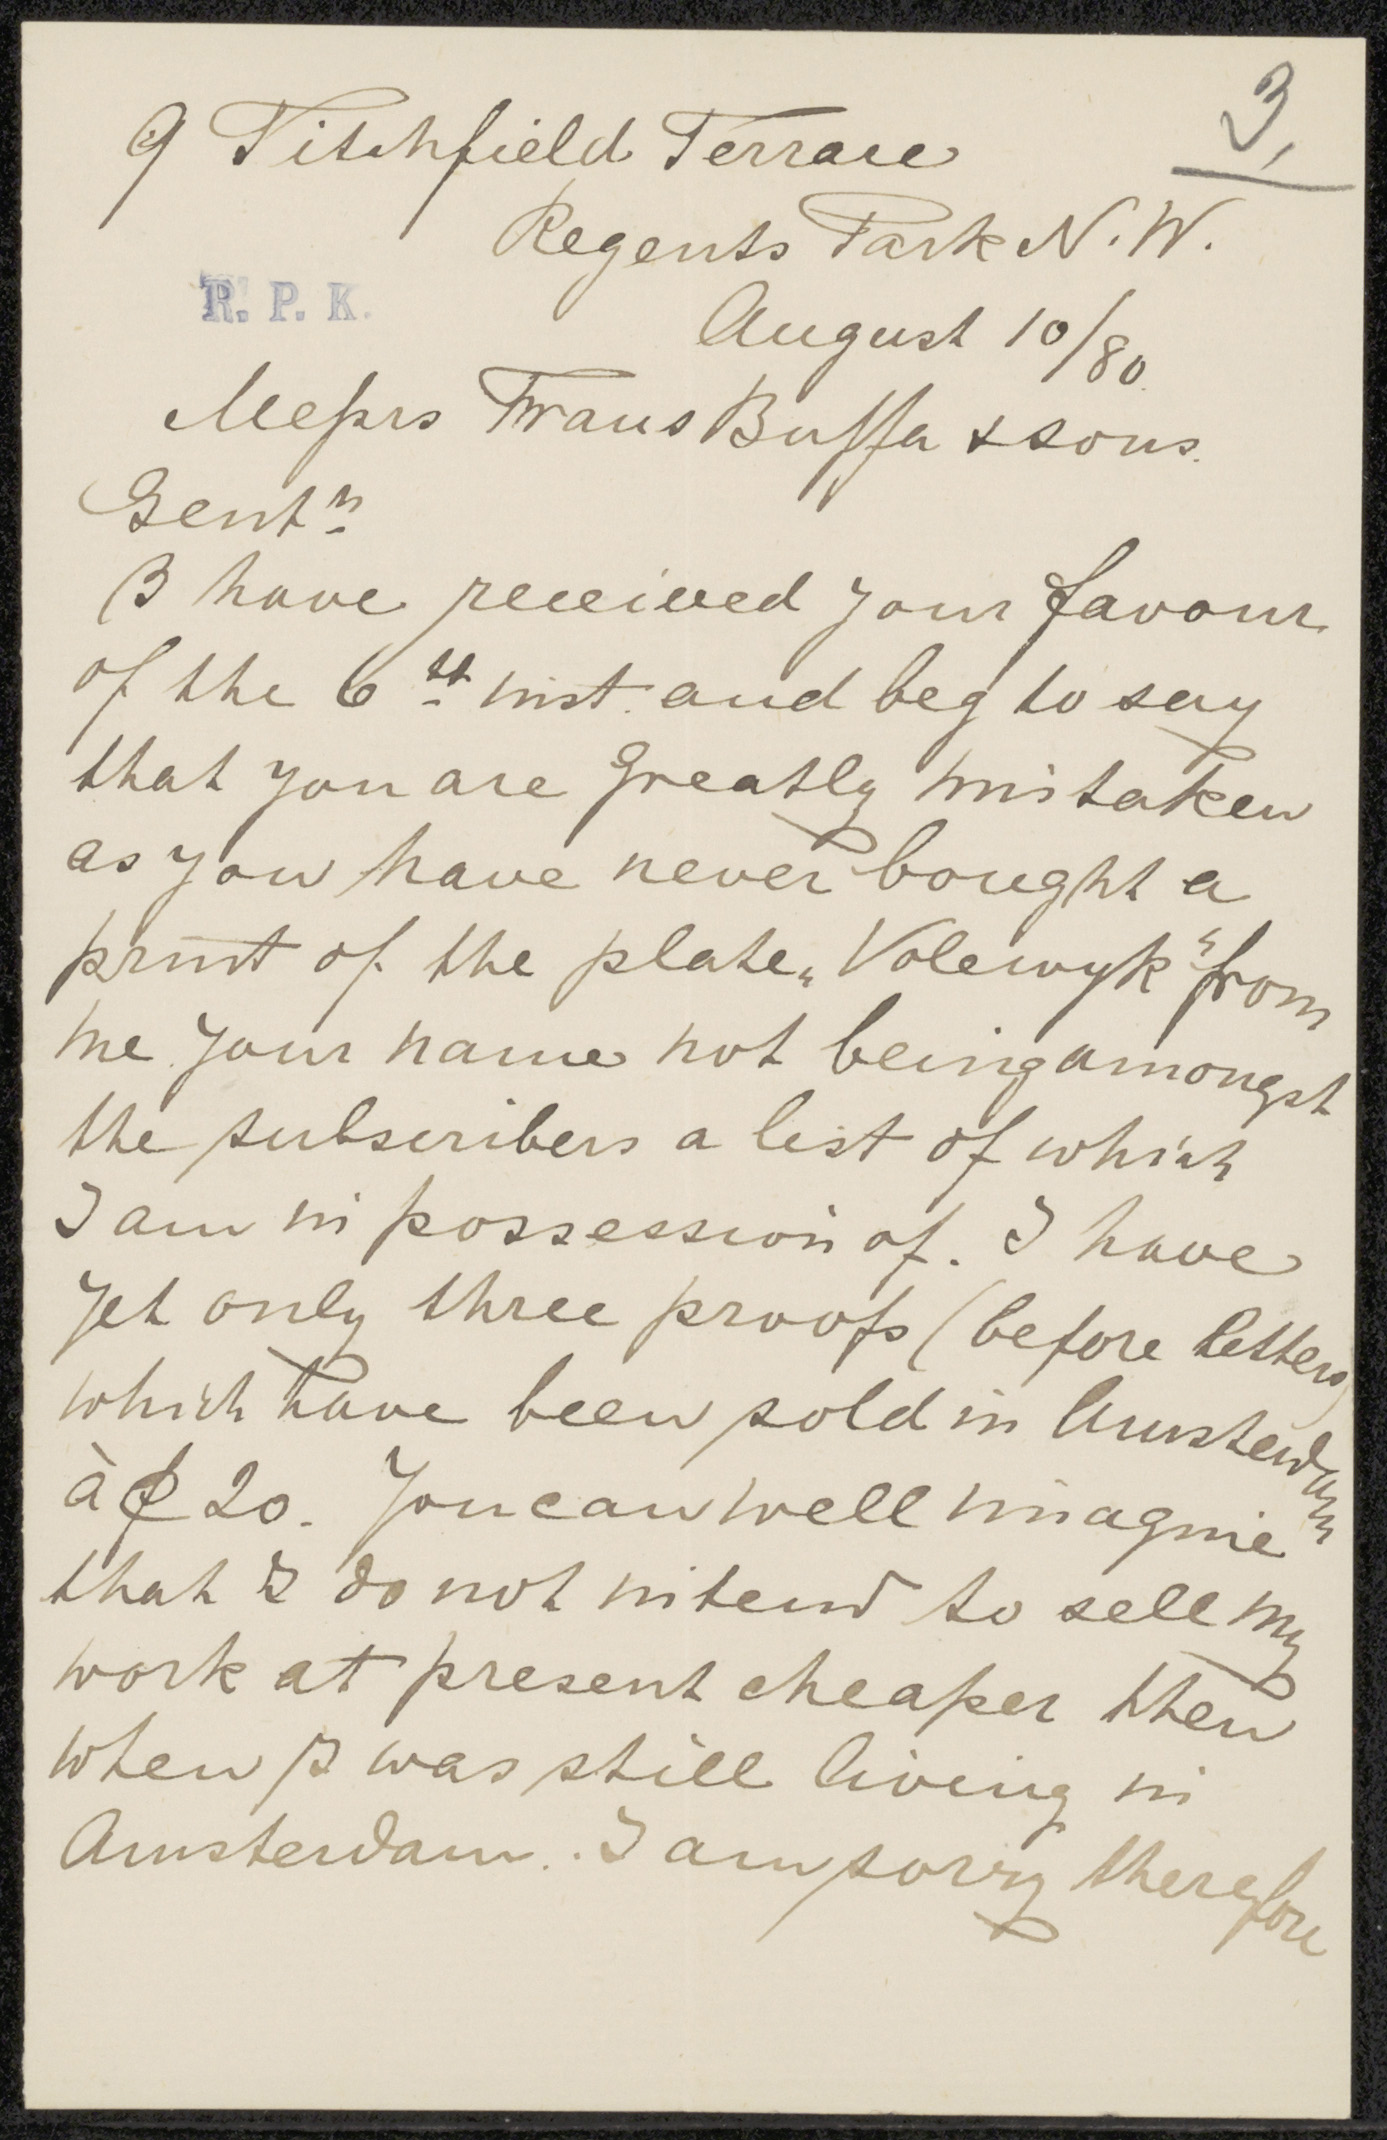 3,
9 Titchfield Terrace
Regents Park N.W.
R. P. K.
August 10/80.
Messrs Frans Buffa & sons.
Gentn
I have received your favour
of the 6th inst. and beg to say
that you are greatly mistaken
as you have never bought a
print of the plate „Volewyk" from
me your name not being amongst
the subscribers a list of which
I am in possession of. I have
yet only three proofs (before letters)
which have been sold in Amsterdam
à ƒ 20. You can well imagine
that I do not intend to sell my
work at present cheaper then
when I was still living in
Amsterdam. I am sorry therefore